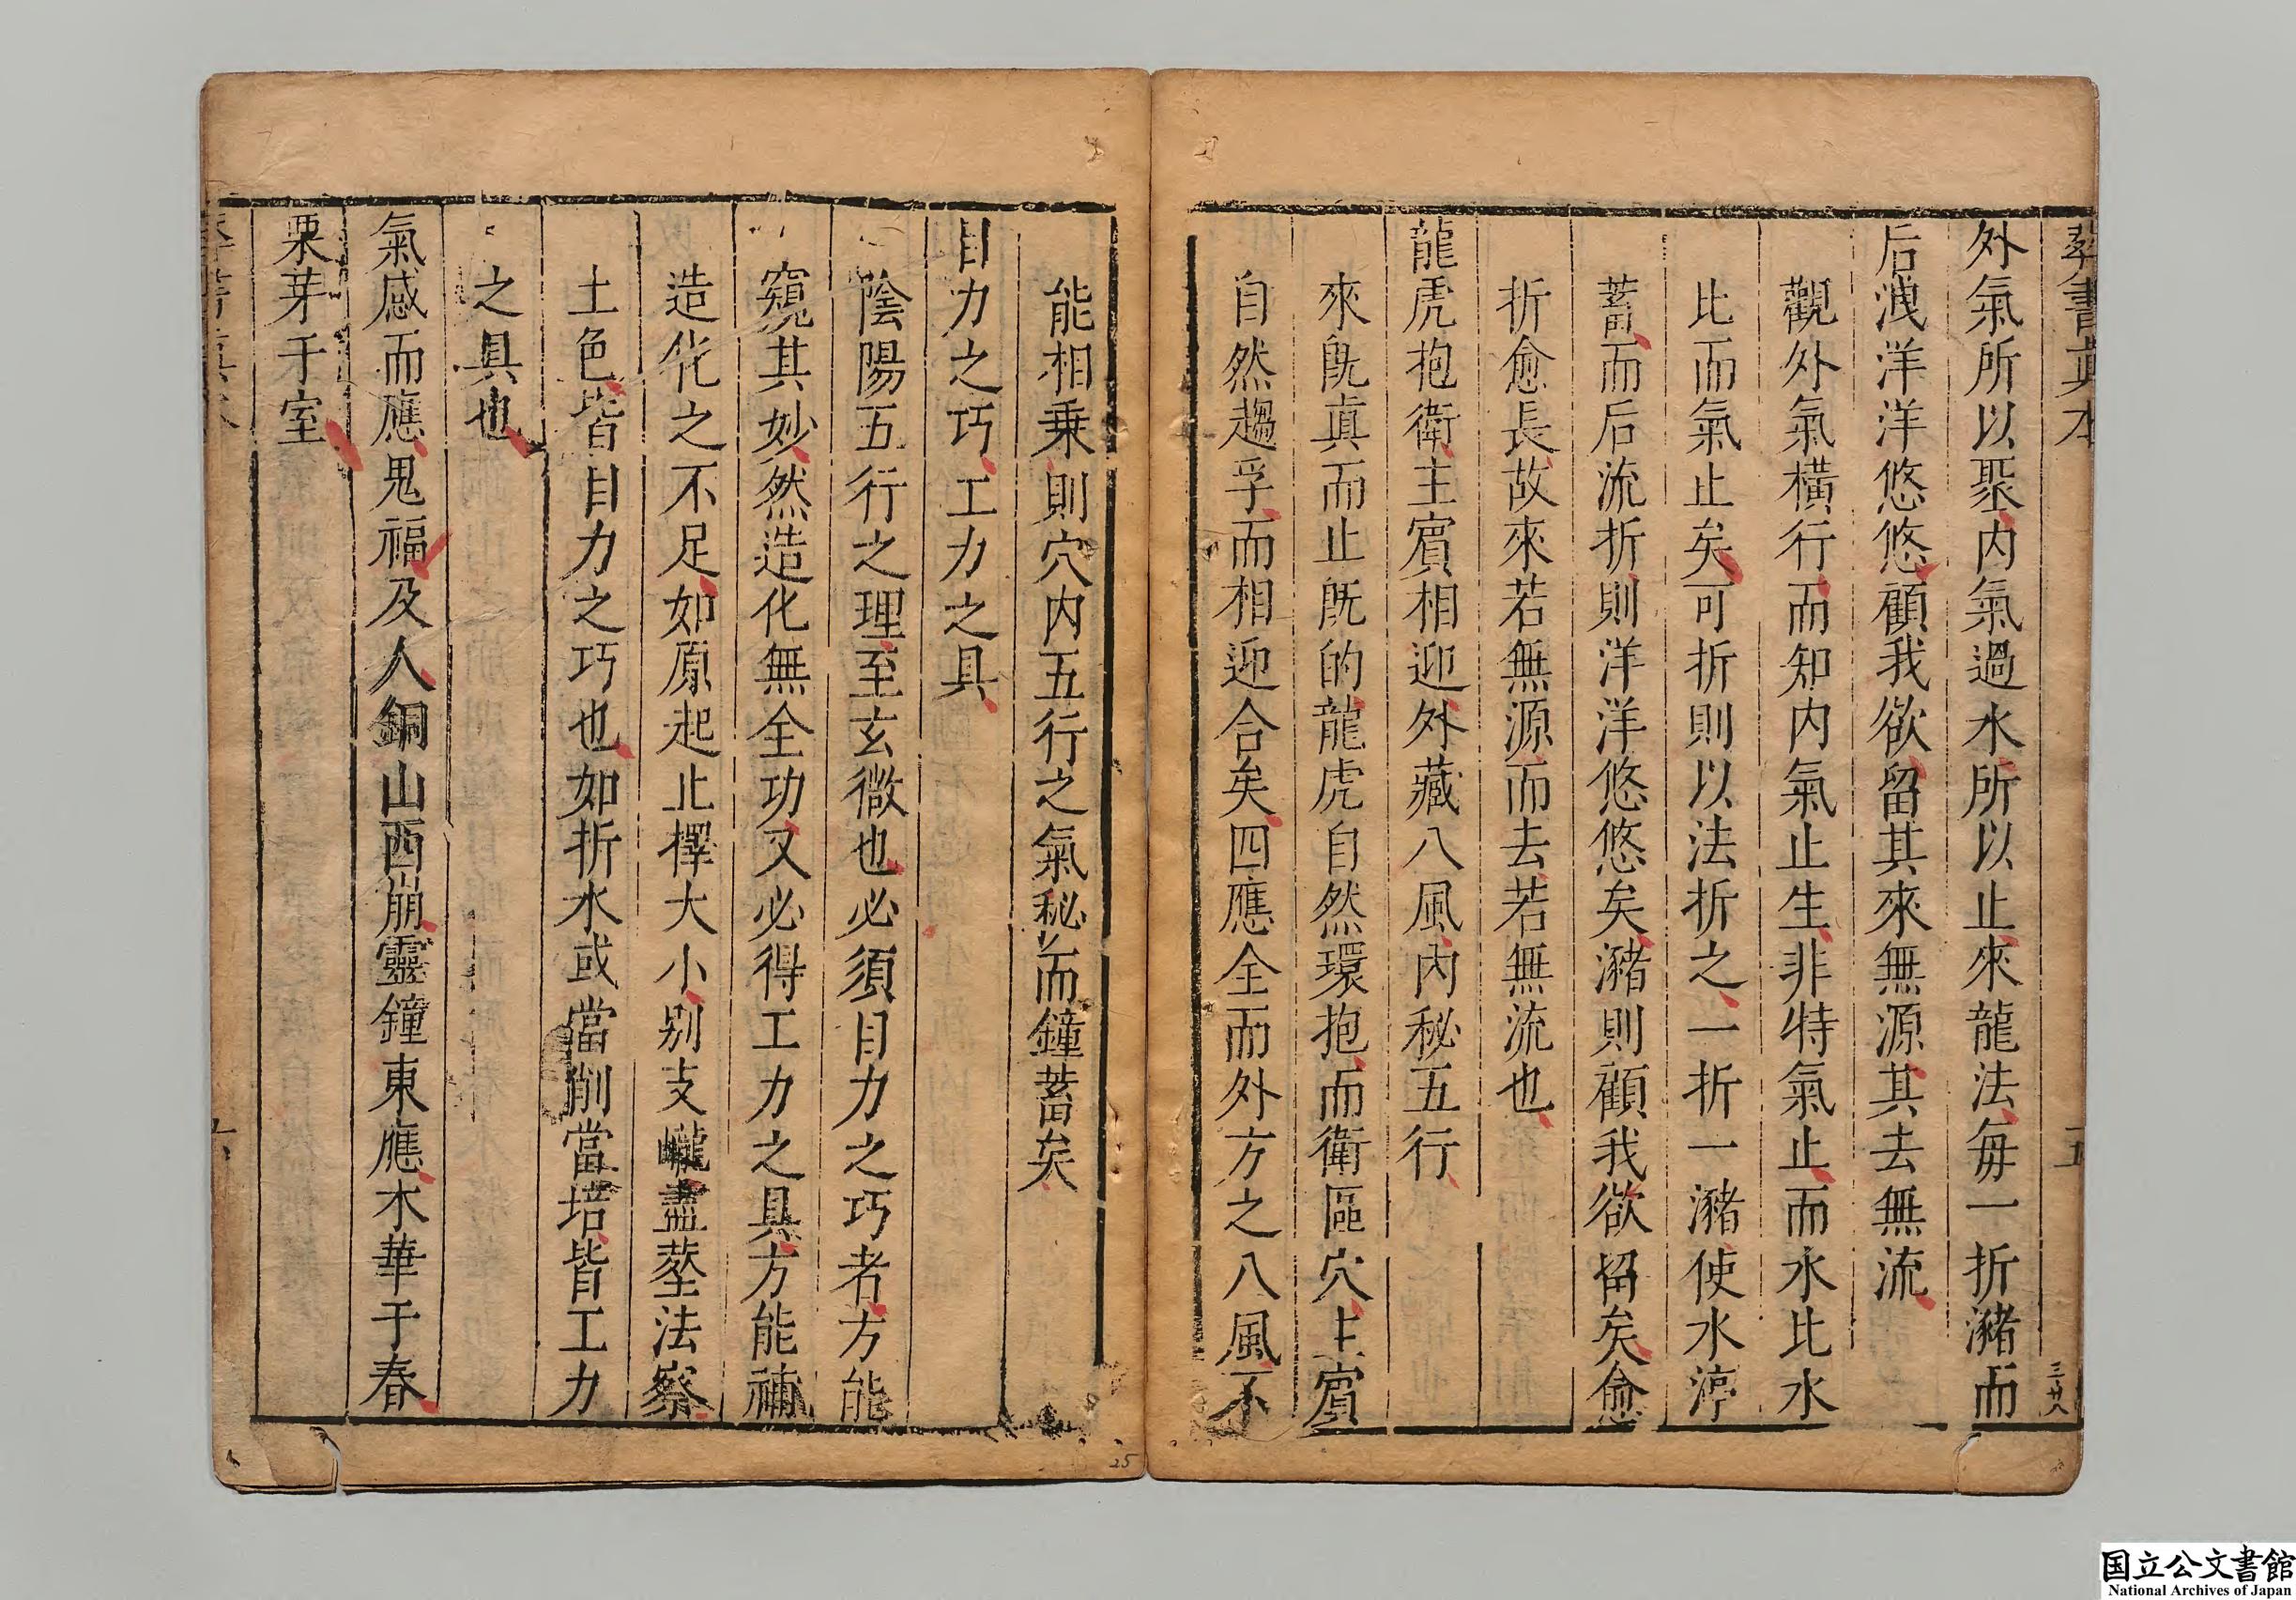 葬書眞本
五
三廿八
外氣所以聚内氣過水所以止來龍法每一折瀦而
后洩洋洋悠悠顧我欲留其來無源其去無流
觀外氣橫行而知内氣止生非特氣止而水比水
比而氣止矣可折則以法折之一折一瀦使水渟
蓄而后流折則洋洋悠悠矣瀦則顧我欲留矣愈
折愈長故來若無源而去若無流也
龍虎抱衛主賓相迎外藏八風内秘五行
來旣眞而止旣的龍虎自然環抱而衛區穴主賓
自然趨孚而相迎合矣四應全而外方之八風不
能相乗則穴内五行之氣秘而鐘蓄矣
目力之巧工力之具
陰陽五行之理至玄微也必須目力之巧者方能
窺其妙然造化無全功又必得工力之具方能補
造化之不足如原起止擇大小别支巄盡塟法察
土色皆目力之巧也如折水或當削當培皆工力
之具也
氣感而應鬼福及人銅山西崩靈鐘東應木華于春
栗芽于室
六
25
国立公文書館
National Archives of Japan